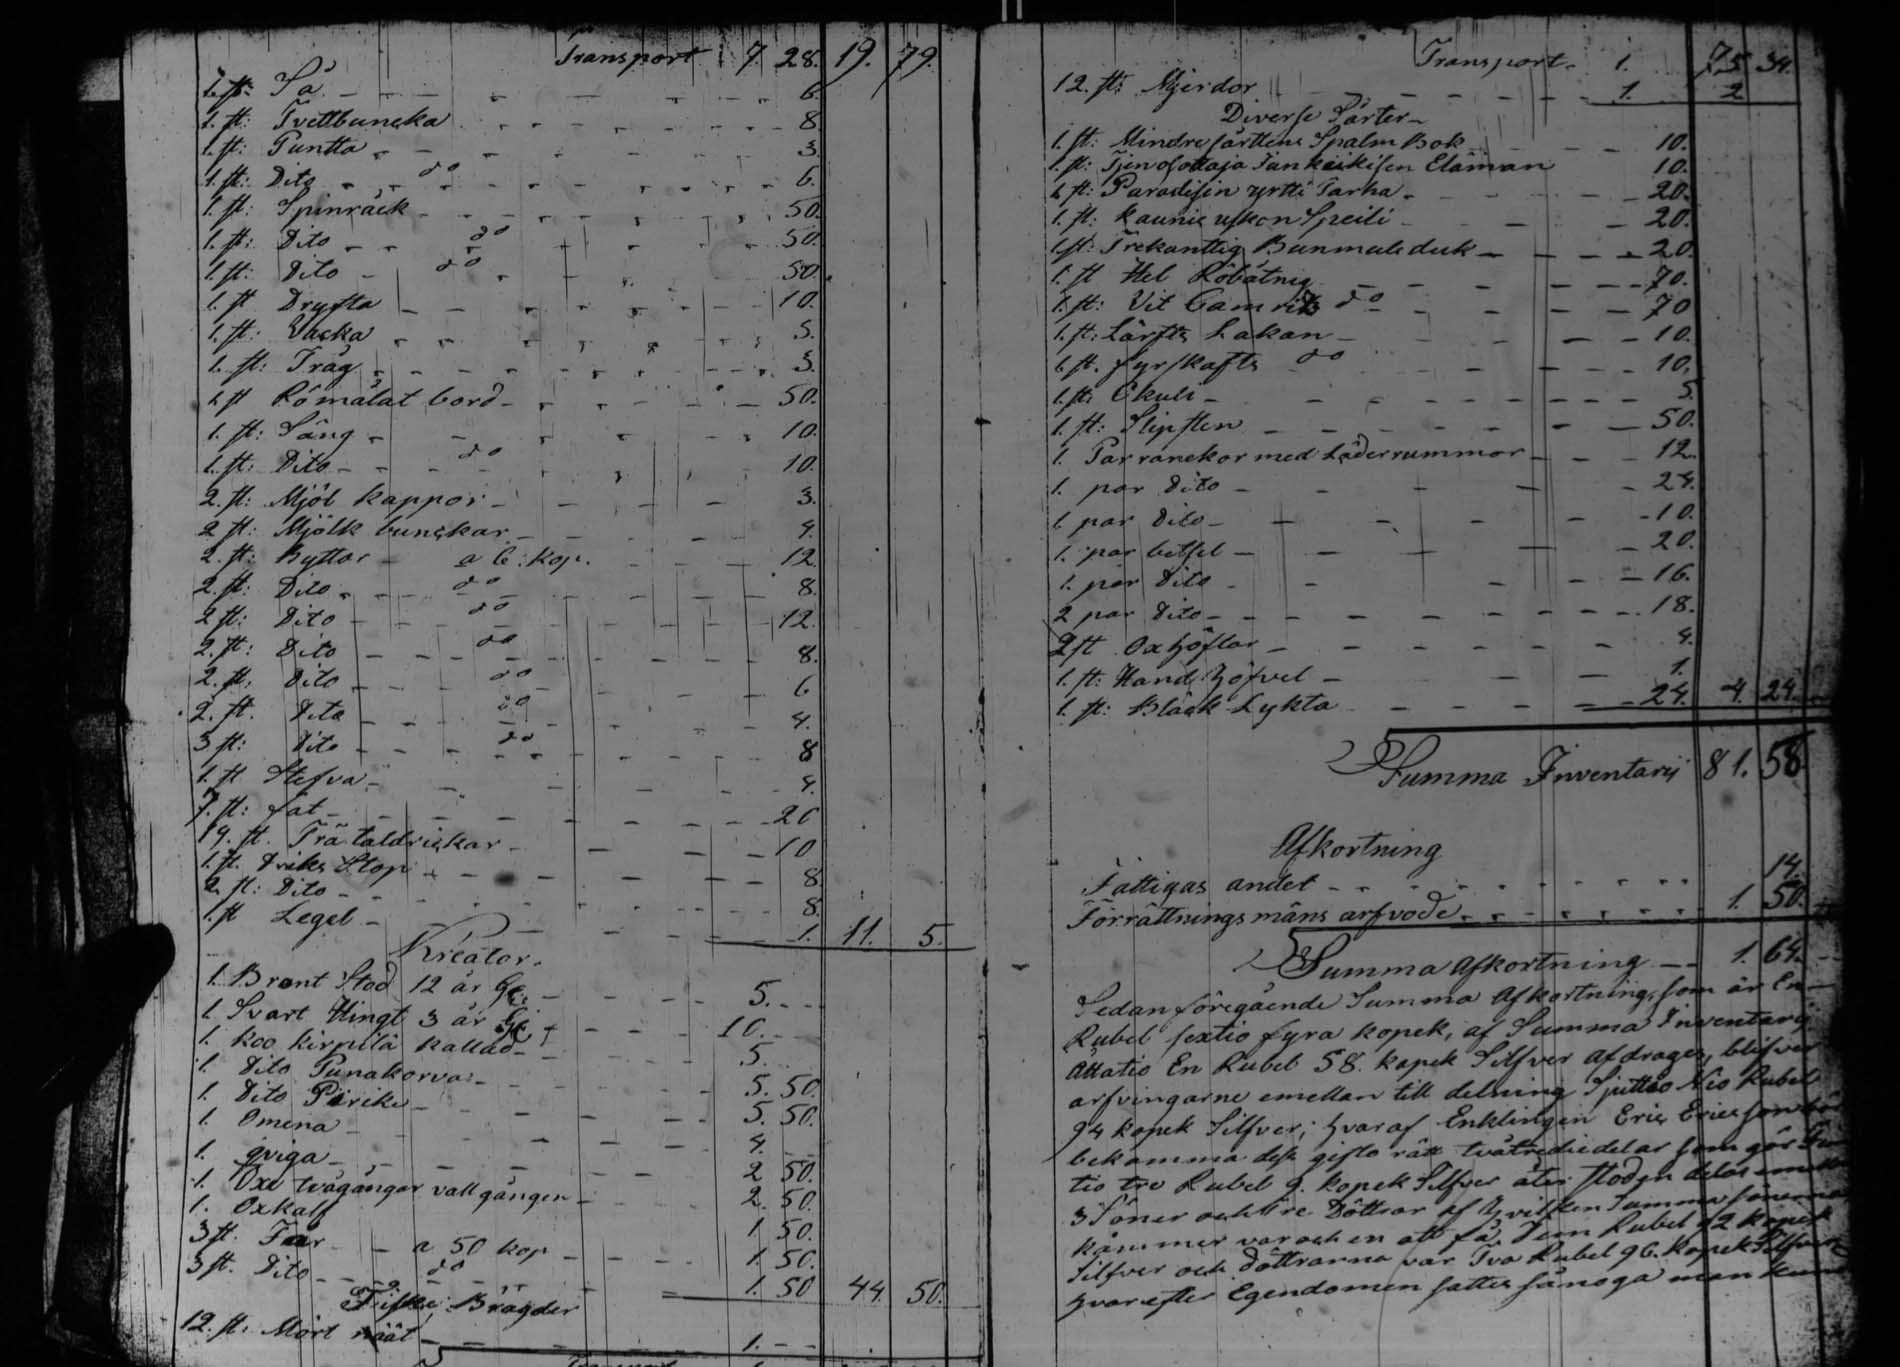 Transport 7. 28. 19. 79.
1. st: Så 6.
1. st: Tvettbuncka 8.
1. st: Puntta 3.
1. st: Dito do 6.
1. st: Spinråck 50.
1. st: Dito do 50.
1. st: Dito do 50.
1. st Dryfta 10.
1. st: Vacka 5.
1. st: Tråg 3.
1. st Rö målat bord 50.
1. st: Säng 10.
1. st: Dito do 10.
2. st: Mjöl kappor 3.
2 st: Mjölk bunckar 4.
2. st: Byttor a 6: kop. 12.
2. st: Dito do 8.
2 st: Dito do 12.
2. st: Dito do 8.
2. st: Dito do 6
2. st. Dito do 4.
3 st: Dito do 8
1. st Stefva 4.
7. st: fat 20
19. st. Trä taldrickar 10
1. st. Dricks Stop 8.
2 st: Dito 8.
1. st Legel 1. 11. 5.
Kreatur.
1. Bront Stod 12 år 5.
1 Svart Hingt 3 år 10.
1. koo kirpulä kallad 5.
1. Dito Punakorva 5. 50.
1. Dito Pärike 5. 50.
1. Omena 4.
1. qviga 2 50.
1. Oxe tvågångar vallgången 2. 50.
1. Oxkalf 1 50.
3 st. Får a 50 kop 1. 50.
3 st. Dito do 1. 50 44. 50.
Fiske Brägder
12. st: Mört näät 1.
Transport
Transport 1. 75 34.
12. st: Mjerdor 1. 2
Diverse Särter
1. st: Mindre Sörttens Spalm Bok 10.
1. st: Eläman 10.
1 st: Paradisin yrtti Tarha 20.
1. st: kaunis uskon Speili 20.
1 st: Trekantig Bunmuls duk 20.
1. st Hel Röbåtnig 70.
1. st: Vit Camriks do 70
1. st: Lärfts Lakan 10.
1. st. fyrskafts do 10.
1. st: Ckuli 5.
1. st: Slipsten 50.
1. Par ranckor med Läderrummor 12.
1. par Dito 24.
1. par Dito 10.
1. par betsel 20.
1. par Dito 16.
2 par Dito 18.
2 st Oxhöflar 4.
1. st: Hand höfvel 1.
1. st: Bläck Lykta 24. 4. 24.
Summa Inventarij 81. 58
Afkortning
Fattigas andel 14.
Förrättnings mäns arfvode 1. 50.
Summa Afkortning 1. 64.
Sedan föregående Summa Afkortning, som är En
Rubel sextio fyra kopek, af Summa Inventarij
Åttatio En Rubel 58. kopek Silfver afdrages, blifver
arfvingarne emellan till delning Sjuttio Nio Rubel
94 kopek Silfver; hvaraf Enklingen Eric Ericsson bör
bekomma des gifto rätt tvåtrediedelar som gör Fem
tio tre Rubel 9. kopek Silfver åter stoden delas emellan
3 Söner och tre Döttrar af hvilken Summa sönerna
kommer var och en att få, Fem Rubel 92 kopek
Silfver och döttrarna var Två Rubel 96. kopek Silfver
hvarefter Egendomen sattes så noga man kunde